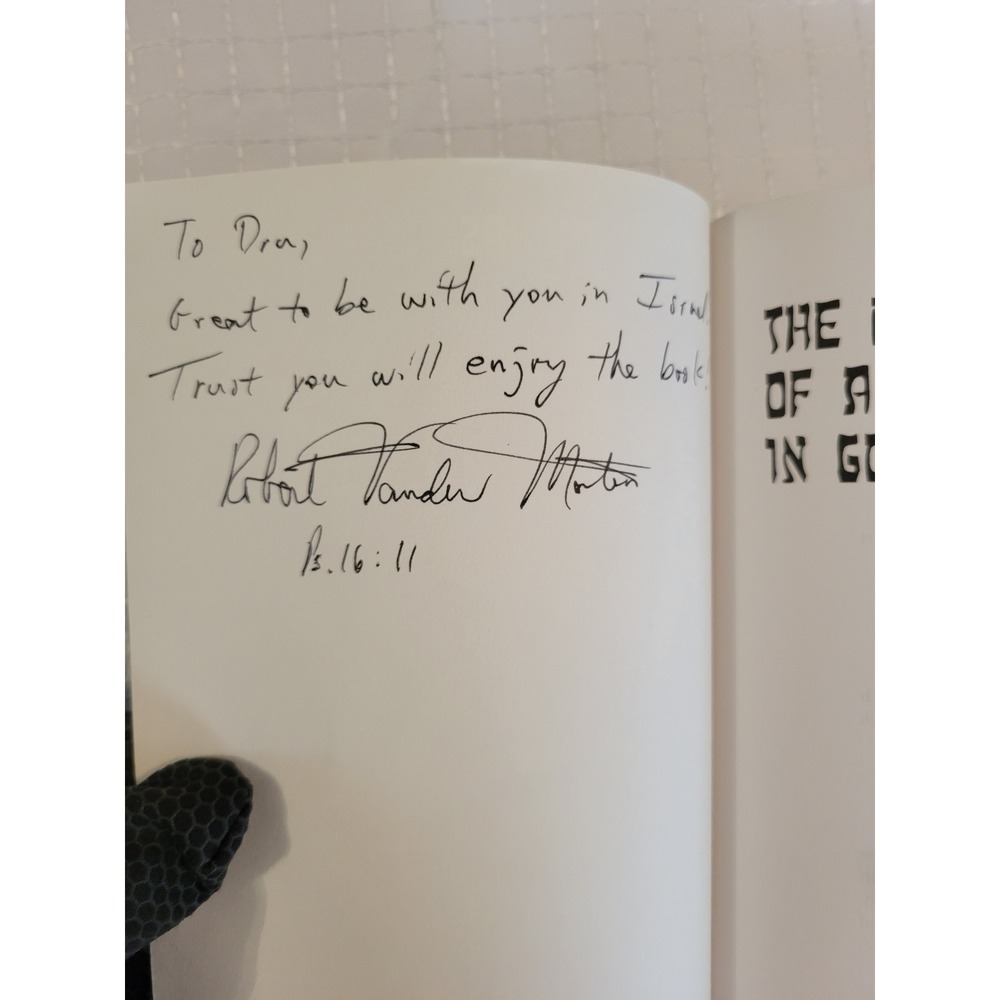 To Dra,
Great to be with you in Israel.
Trust you will enjoy the book!
Robert Vander
Ps. 16:11
THE
OF A
IN